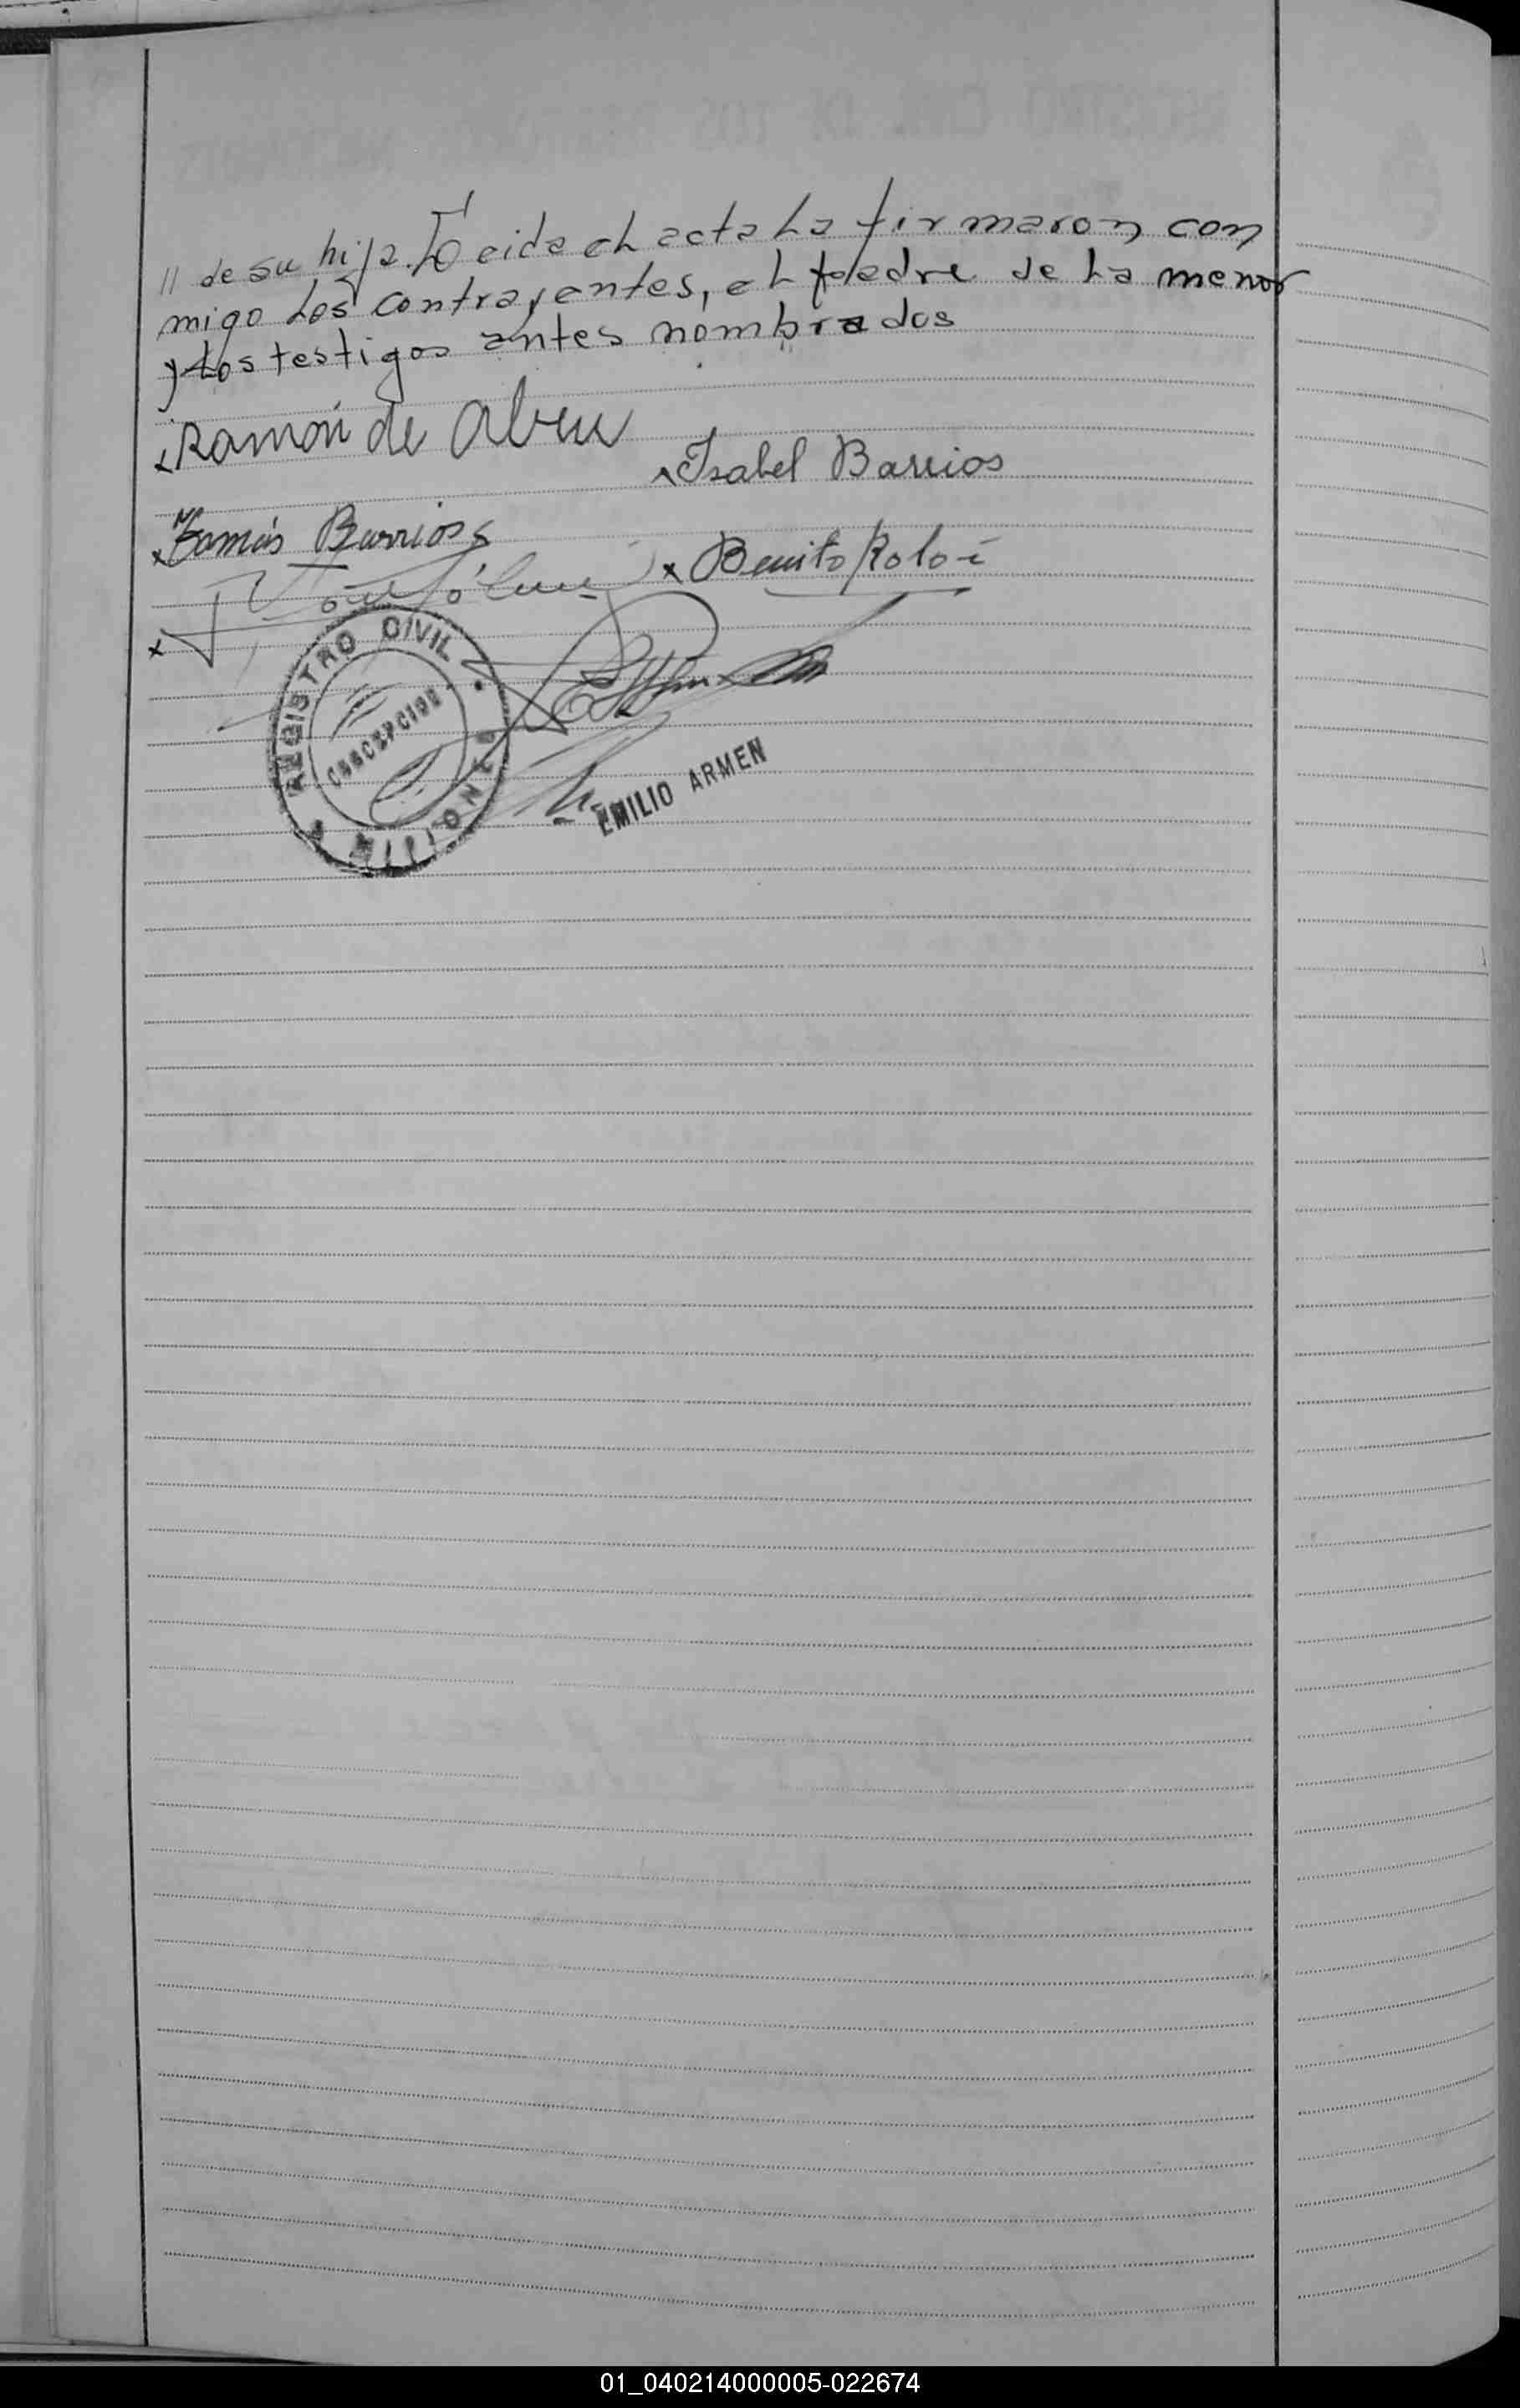 // de su hija. Leida el acta la firmaron con
migo los contrayentes, el padre de la menor
y los testigos antes nombrados
x Ramón de Abreu
x Isabel Barrios
x Tomás Barrios
x Benito Roloi
x
REGISTRO CIVIL
CONCEPCION
MISIONES
EMILIO ARMEN
01_040214000005-022674